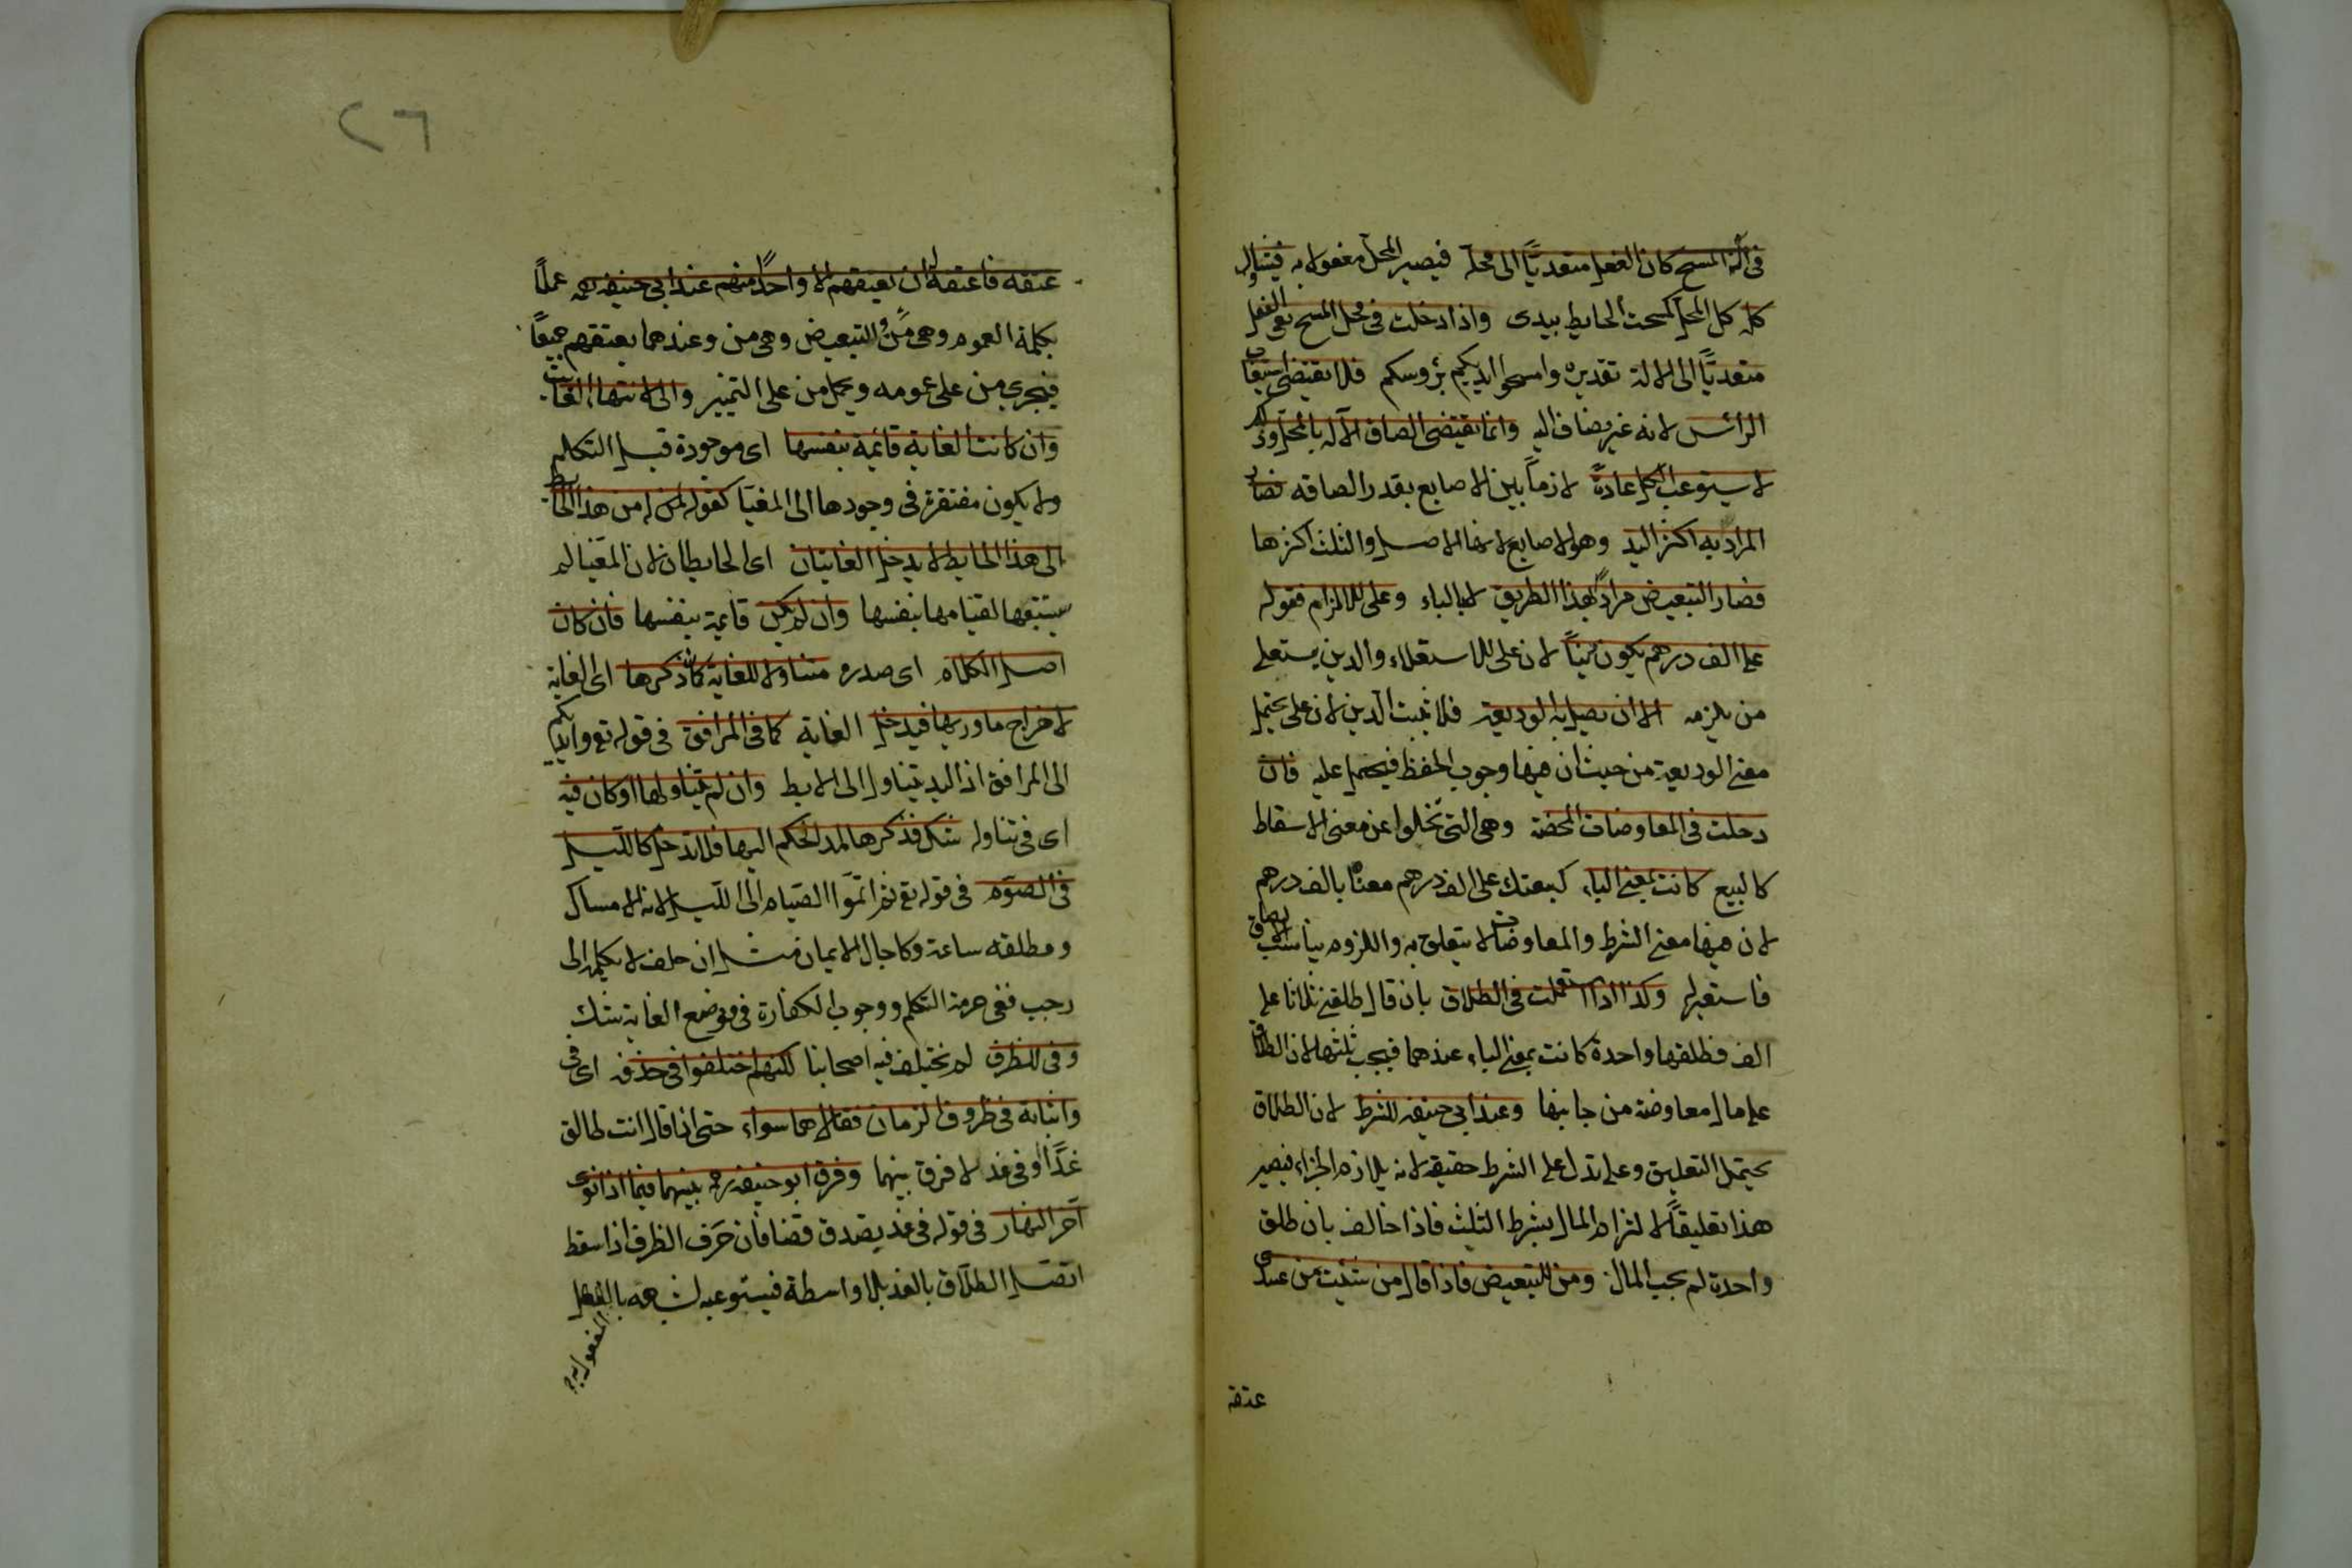 في آلة المسح كان الفعل متعديًا الى محله فيصير المحل مفعولا به فيتناول
كله كل المحل كمسحت الحايط بيدى واذا دخلت فى محل المسح بقى الفعل
متعديًا الى الالة تقديره وامسحوا ايديكم برؤسكم فلا يقتضى استيعاب
الرأس لانه غير مضاف اليه وانما يقتضى الصاق الآلة بالمحل وذلك
لا يستوعب الكل عادةً لازماً بين الاصابع بقدر الصاقه فصار
المراد به اكثر اليد وهو الاصابع لانها الاصل والثلث اكثرها
فصار التبعيض مرادًا بهذا الطريق لا بالباء وعلى للالزام فقوله
على الف درهم يكون دينًا لان على للاستعلاء والدين يستعلى
من يلزمه الا ان يصل به الوديعة فلا يثبت الدين لان على يحتمل
معنى الوديعة من حيث ان فيها وجوب الحفظ فيحمل عليه فان
دخلت فى المعاوضات المحضة وهى التى تخلوا عن معنى الاسقاط
كالبيع كانت بمعنى الباء كبعتك على الف درهم معناه بالف درهم
لان فيها معنى الشرط والمعاوضات لا يتعلق به واللزوم يناسب الالصاق
فاستعير له وكذا اذا استعملت فى الطلاق بان قال طلقنى ثلاثا على
الف فطلقها واحدة كانت بمعنى الباء عندهما فيجب ثلثها لان الطلاق
على مال معاوضة من جانبها وعند ابي حنيفه للشرط لان الطلاق
يحتمل التعليق وعلى تدل على الشرط حقيقه لانه يلازم الجزاء فيصير
هذا تعليقاً لالتزام المال بشرط الثلث فاذا خالف بان طلق
واحدة لم يجب المال ومن للتبعيض فاذا قال من شئت من عبيدى
عتقه
٢٦
عتقه فاعتقه له ان يعتقهم الا واحدًا منهم عند ابي حنيفه رحمه عملًا
بكلمة العموم وهى مَن والتبعيض وهى من وعندهما يعتقهم جميعًا
فيجرى من على عمومه ويحمل من على التمييز والى لانتهاء الغاية
وان كانت الغاية قائمة بنفسها اى موجودة قبل التكلم
ولا يكون مفتقرة فى وجودها الى المغيّا كقوله له من هذا الحايط
الى هذا الحايط لا يدخل الغايتان اى الحايطان لان المغيا لم
يستتبعها لقيامها بنفسها وان لم يكن قائمة بنفسها فان كان
اصل الكلام اى صدره متناولا للغاية كان ذكرها اى الغاية
لاخراج ما وراءها فيدخل الغاية كما فى المرافق فى قوله تع وايديكم
الى المرافق اذ اليد يتناول الى الابط وان لم يتناولها او كان فيه
اى فى تناوله شك فذكرها لمد الحكم اليها فلا تدخل كالليل
فى الصوم فى قوله تع ثم اتمّوا الصيام الى الليل لانه الامساك
ومطلقه ساعة وكاجال الايمان مثل ان حلف لا يكلمه الى
رجب ففى حرمة التكلم ووجوب الكفارة فى موضع الغاية شك
وفى للظرف لم يختلف فيه اصحابنا لكنهم اختلفوا فى حذفه اى فى
واثباته فى ظروف الزمان فقالا هما سواء حتى اذا قال انت طالق
غدًا او فى غد لا فرق بينهما وفرق ابو حنيفه رحمه بينهما فيما اذا نوى
آخر النهار فى قوله فى غد يصدق قضا فان حرف الظرف اذا سقط
اتصل الطلاق بالغد بلا واسطة فيستوعبه لشبهه بالفعل
المفعول به